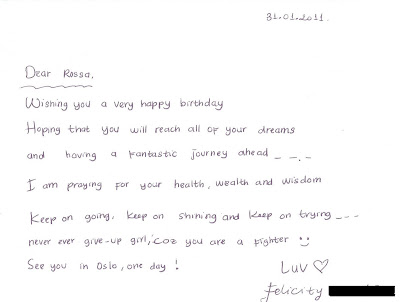 31.01.2011.
Dear Rossa,
Wishing you a very happy birthday
Hoping that you will reach all of your dreams
and having a fantastic journey ahead _ _._
I am praying for your health, wealth and wisdom
Keep on going, keep on shining and keep on trying _ _ _
never ever give-up girl, 'coz you are a fighter :)
See you in Oslo, one day !
Luv ♡
Felicity